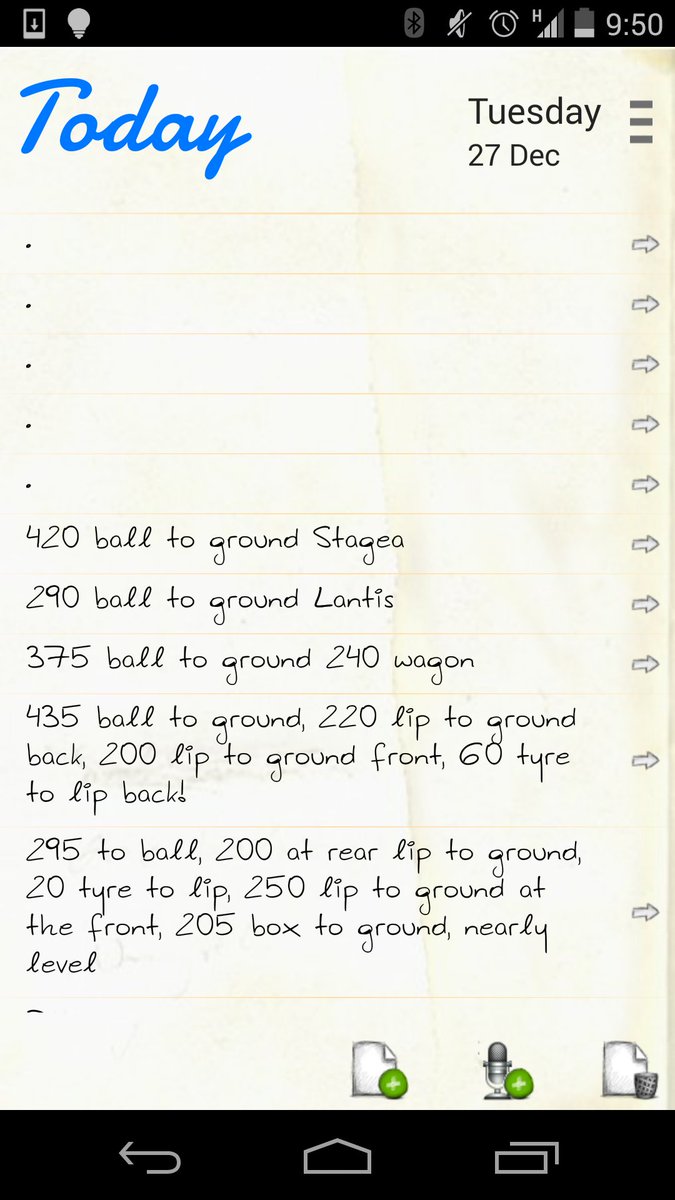 H
9:50
Today
Tuesday
27 Dec
.
.
.
.
.
420 ball to ground Stagea
290 ball to ground Lantis
375 ball to ground 240 wagon
435 ball to ground, 220 lip to ground
back, 200 lip to ground front, 60 tyre
to lip back!
295 to ball, 200 at rear lip to ground,
20 tyre to lip, 250 lip to ground at
the front, 205 box to ground, nearly
level